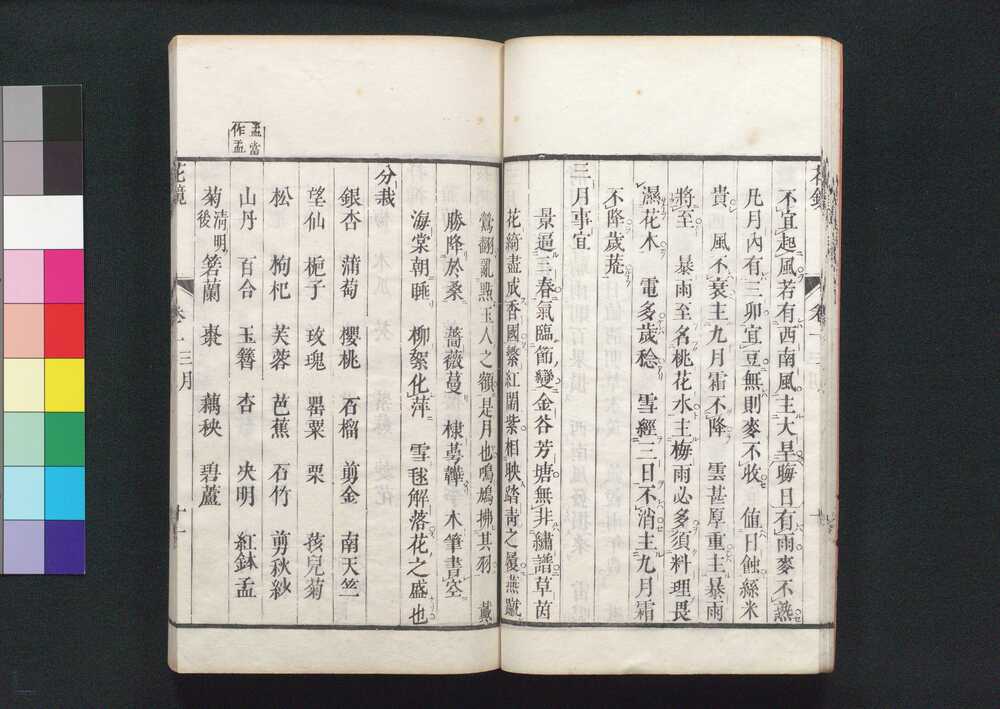 不宜起風若有西南風主大旱晦日有雨麥不熟
凡月內有三卯宜豆無則麥不收 值日蝕絲米
貴 風不衰主九月霜不降 雲甚厚重主暴雨
將至 暴雨至名桃花水主梅雨必多須料理畏
濕花木 電多歲稔 雪經二日不消主九月霜
不降歲荒
三月事宜
景逼三春氣臨節變金谷芳塘無非繡譜草茵
花綺盡成香國繁紅鬧紫相映踏青之屐燕蹴
鶯翻亂㸃玉人之額是月也鳴鳩拂其羽 戴
勝降於桑 薔薇蔓 棣萼韡 木筆書空
海棠朝睡 柳絮化萍 雪毬解落花之盛也
分栽
銀杏 蒲萄 櫻桃 石榴 剪金 南天竺
望仙 梔子 玫瑰 罌粟 栗 孩兒菊
松 枸杞 芙蓉 芭蕉 石竹 剪秋紗
山丹 百合 玉簪 杏 决明 紅鉢盂
菊清明後 箬蘭 棗 藕秧 碧蘆
花鏡 卷一 三月 十一
盂當作盂